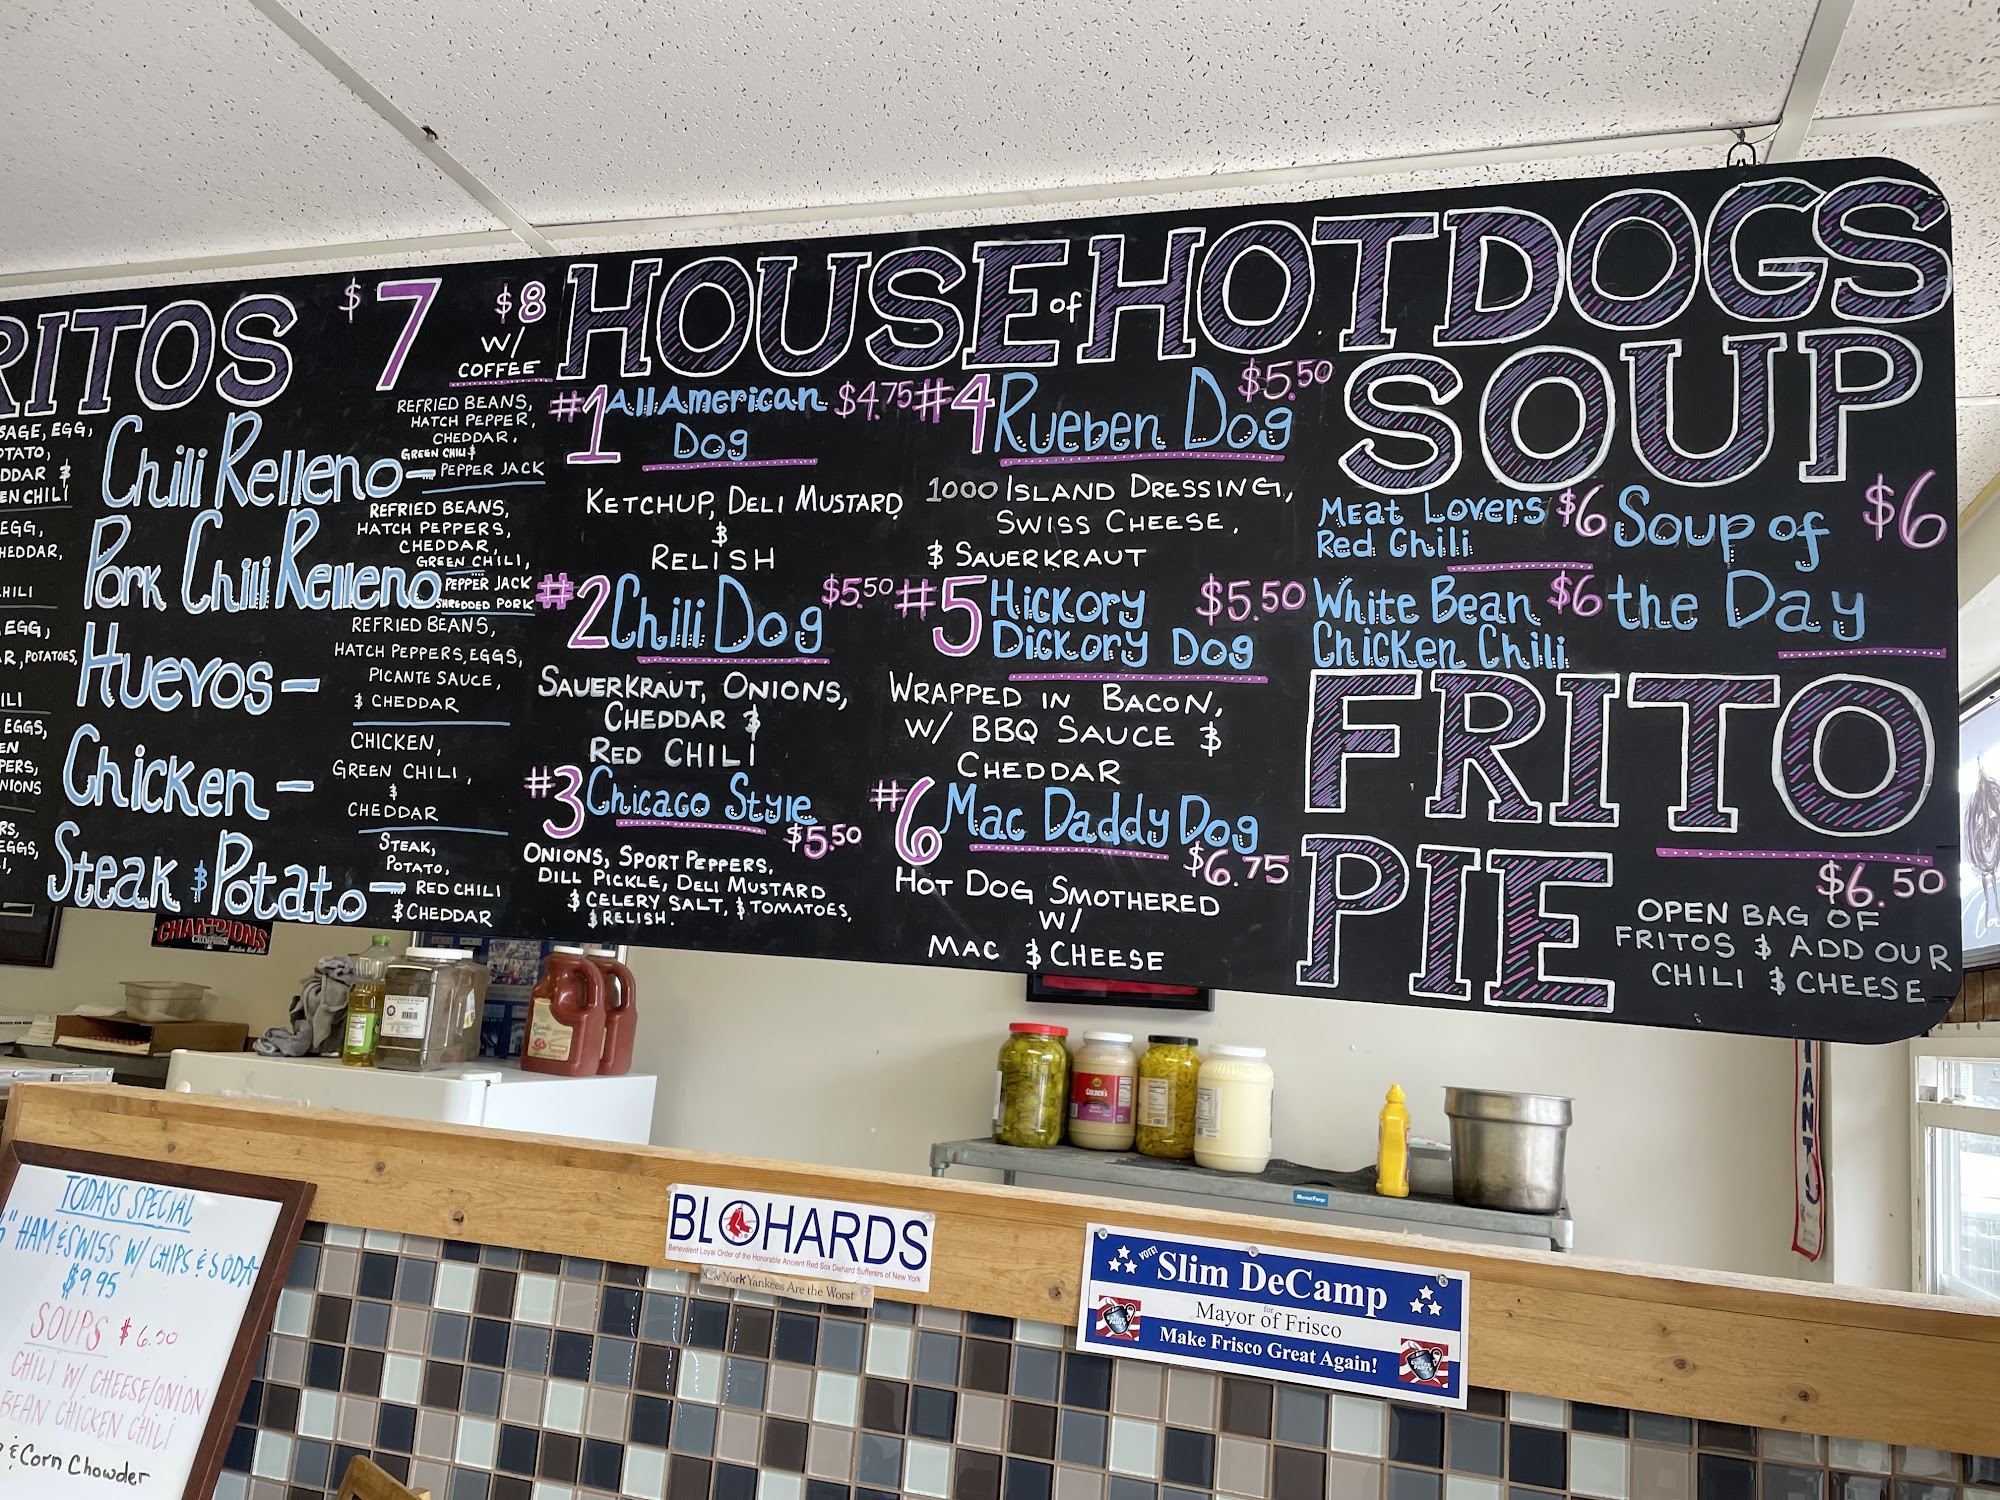 RITOS $7 $8
W/
COFFEE
SAGE, EGG,
DDAR &
EGG,
EGG,
EGGS,
Chili Relleno —
REFRIED BEANS,
HATCH PEPPER,
CHEDDAR,
GREEN CHILI &
PEPPER JACK
Pork Chili Relleno
REFRIED BEANS,
HATCH PEPPERS,
CHEDDAR,
GREEN CHILI,
PEPPER JACK
SHREDDED PORK
Huevos —
REFRIED BEANS,
HATCH PEPPERS, EGGS,
PICANTE SAUCE,
& CHEDDAR
Chicken —
CHICKEN,
GREEN CHILI,
&
CHEDDAR
Steak & Potato —
STEAK,
POTATO,
RED CHILI
& CHEDDAR
HOUSE of HOT DOGS
#1 All American $4.75
Dog
KETCHUP, DELI MUSTARD
&
RELISH
#2 Chili Dog $5.50
SAUERKRAUT, ONIONS,
CHEDDAR &
RED CHILI
#3 Chicago Style
$5.50
ONIONS, SPORT PEPPERS,
DILL PICKLE, DELI MUSTARD
& CELERY SALT, & TOMATOES,
& RELISH.
#4 Rueben Dog $5.50
1000 ISLAND DRESSING,
SWISS CHEESE,
& SAUERKRAUT
#5 Hickory $5.50
Dickory Dog
WRAPPED IN BACON,
W/ BBQ SAUCE &
CHEDDAR
#6 Mac Daddy Dog
$6.75
HOT DOG SMOTHERED
W/
MAC & CHEESE
SOUP
Meat Lovers $6
Red Chili
White Bean $6
Chicken Chili
Soup of $6
the Day
FRITO
PIE
$6.50
OPEN BAG OF
FRITOS & ADD OUR
CHILI & CHEESE
CHAMPIONS
TODAYS SPECIAL
" HAM & SWISS W/ CHIPS & SODA
$9.95
SOUPS $6.50
CHILI W/ CHEESE/ONION
BEAN CHICKEN CHILI
& Corn Chowder
BLOHARDS
Benevolent Loyal Order of the Honorable Ancient Red Sox Diehard Sufferers of New York
New York Yankees Are the Worst
VOTE!
Slim DeCamp
for
Mayor of Frisco
Make Frisco Great Again!